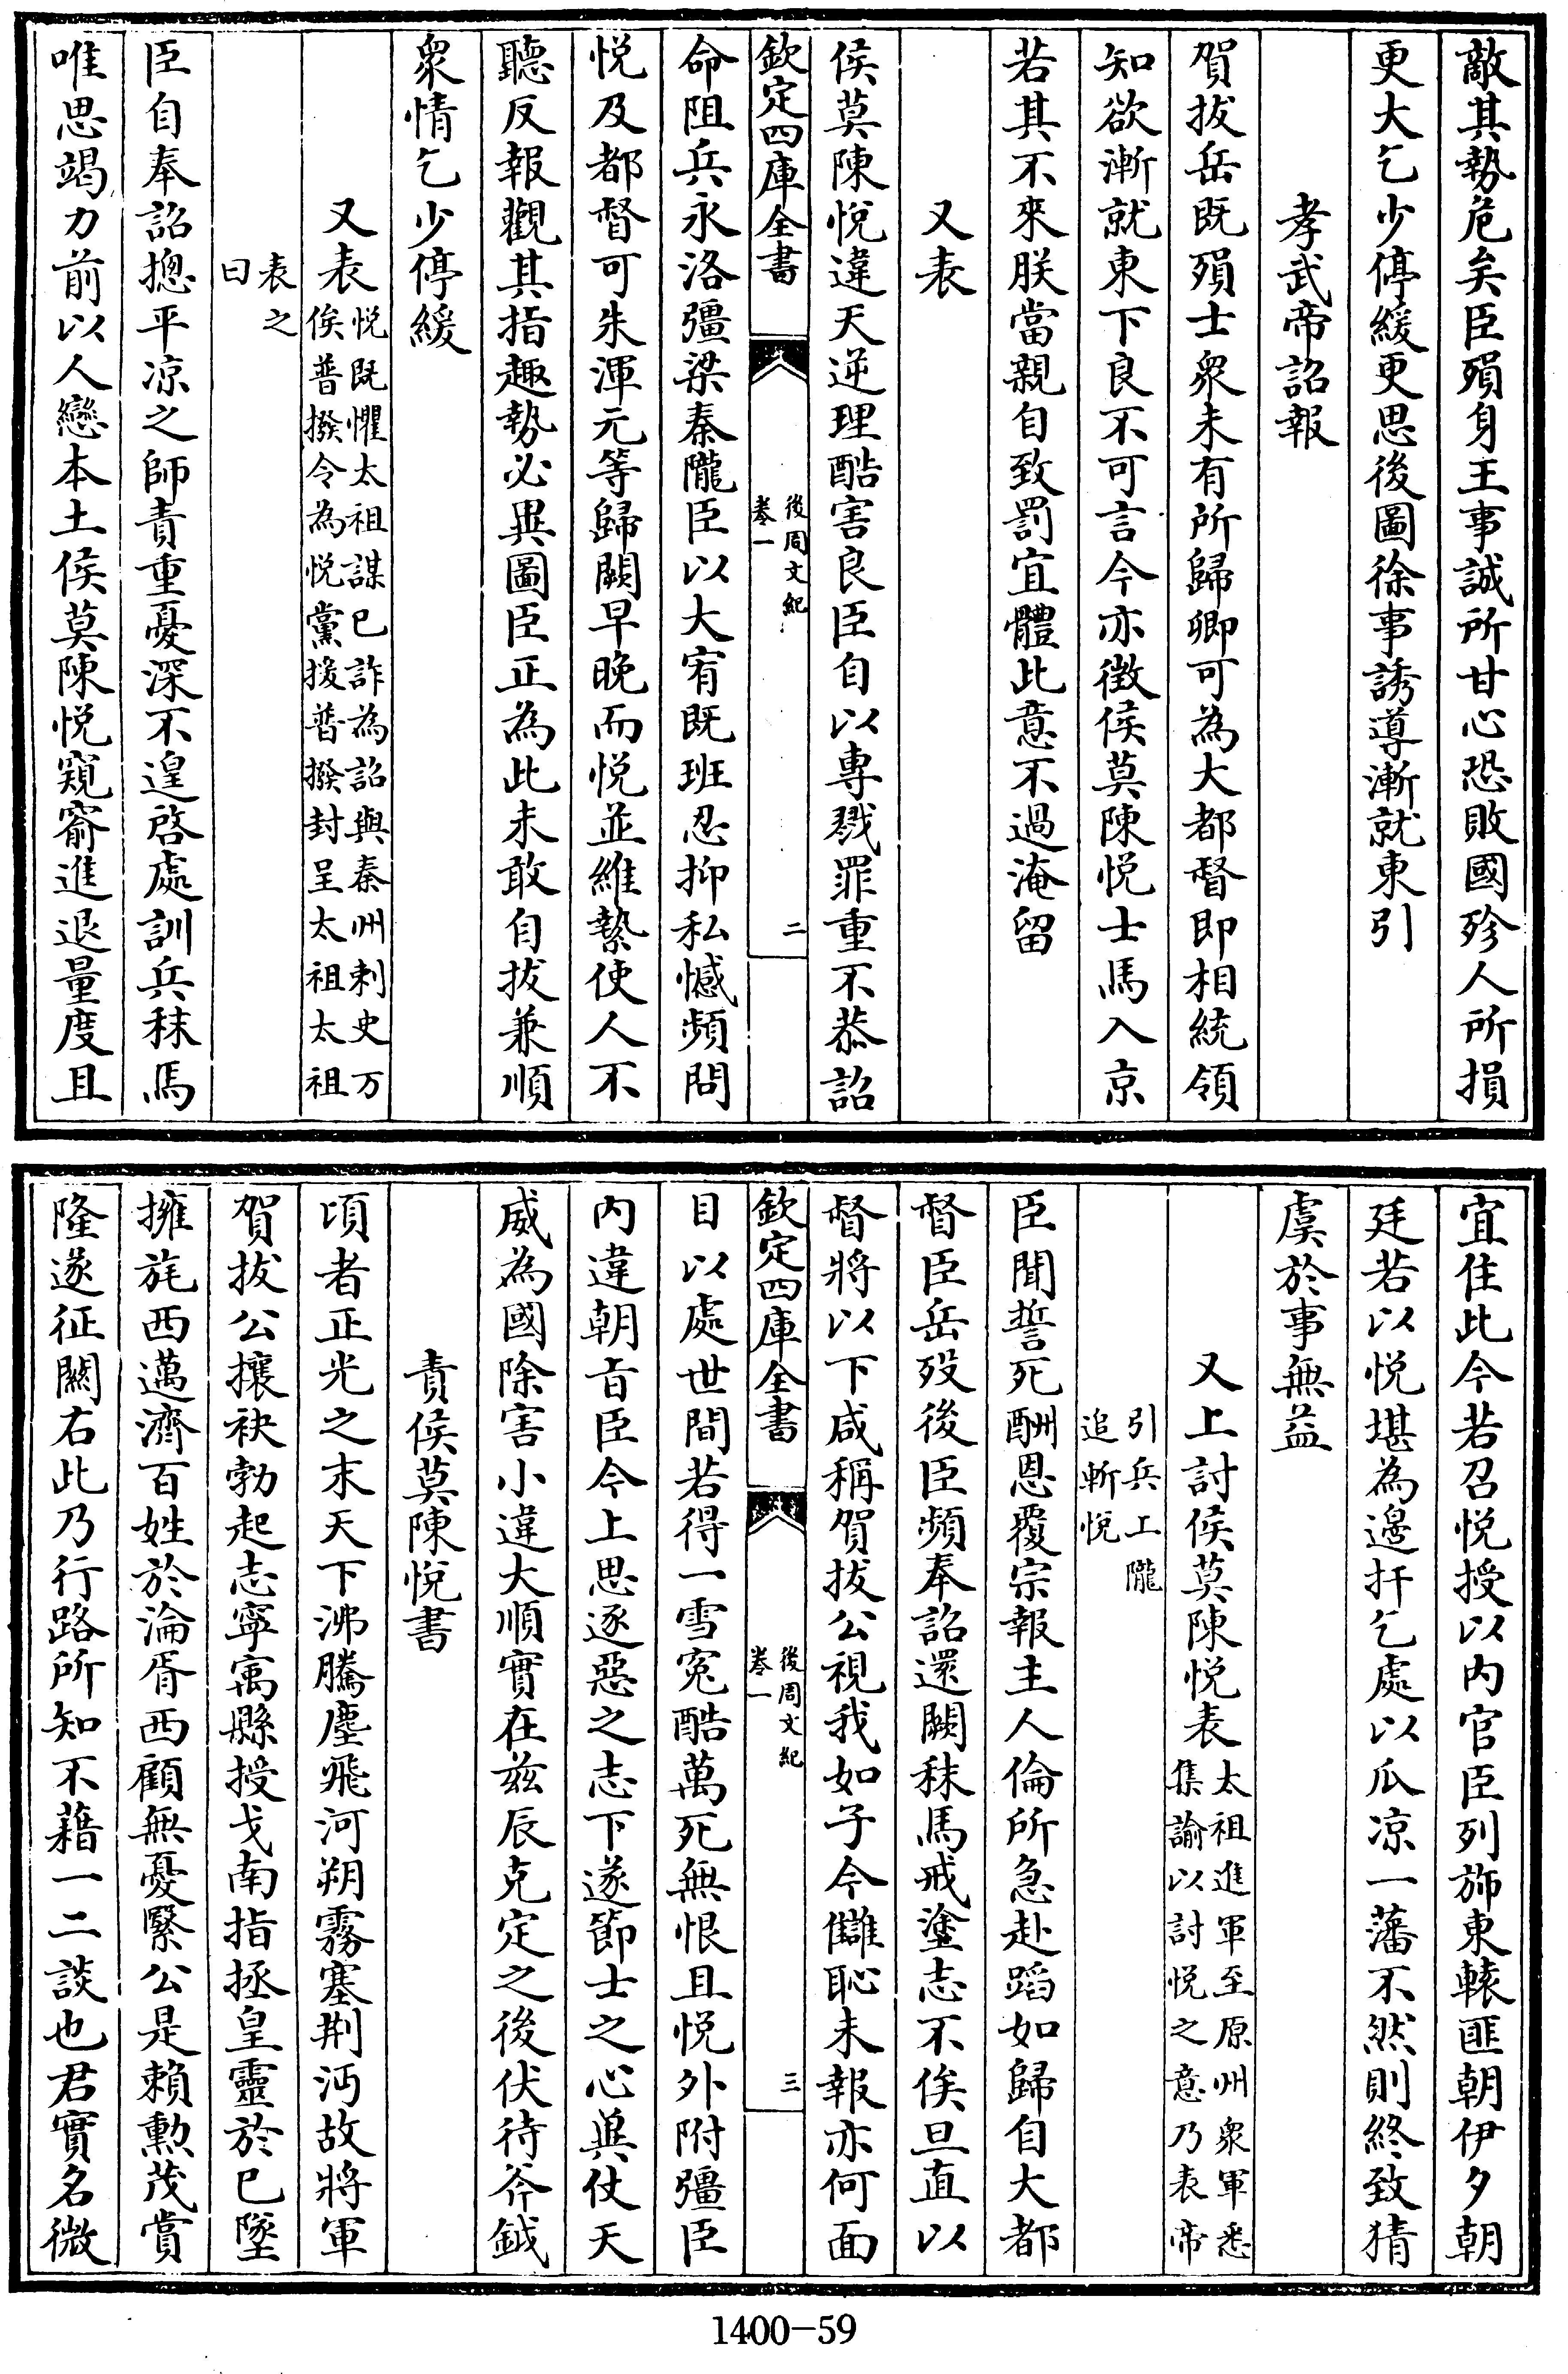 敵其勢危矣臣殞身王事誠所甘心恐敗國殄人所損
更大乞少停緩更思後圖徐事誘導漸就東引
孝武帝詔報
賀拔岳既殞士衆未有所歸卿可為大都督即相統領
知欲漸就東下良不可言今亦徴侯莫陳悦士馬入京
若其不來朕當親自致罰宜體此意不過淹留
又表
侯莫陳悦違天逆理酷害良臣自以專戮罪重不恭詔
欽定四庫全書
後周文紀
卷一
二
命阻兵永洛彊梁秦隴臣以大宥既班忍抑私憾頻問
悦及都督可朱渾元等歸闕早晚而悦並維縶使人不
聽反報觀其指趣勢必異圖臣正為此未敢自拔兼順
衆情乞少停緩
又表悦既懼太祖謀已詐為詔與秦州刺史万
俟普撥令為悦黨援普撥封呈太祖太祖
表之
曰
臣自奉詔摠平凉之師責重憂深不遑啓處訓兵秣馬
唯思竭力前以人戀本土侯莫陳悦窺窬進退量度且
宜住此今若召悦授以内官臣列斾東轅匪朝伊夕朝
廷若以悦堪為邊扞乞處以瓜凉一藩不然則終致猜
虞於事無益
又上討侯莫陳悦表太祖進軍至原州衆軍悉
集諭以討悦之意乃表帝
引兵上隴
追斬悦
臣聞誓死酬恩覆宗報主人倫所急赴蹈如歸自大都
督臣岳殁後臣頻奉詔還闕秣馬戒塗志不俟旦直以
督將以下咸稱賀拔公視我如子今讎恥未報亦何面
欽定四庫全書
後周文紀
卷一
三
目以處世間若得一雪寃酷萬死無恨且悦外附彊臣
内違朝旨臣今上思逐惡之志下遂節士之心兾仗天
威為國除害小違大順實在兹辰克定之後伏待斧鉞
責侯莫陳悦書
頃者正光之末天下沸騰塵飛河朔霧塞荆沔故將軍
賀拔公攘袂勃起志寧寓縣授戈南指拯皇靈於已墜
擁旄西邁濟百姓於淪胥西顧無憂繄公是賴勲茂賞
隆遂征闗右此乃行路所知不藉一二談也君實名微
1400-59